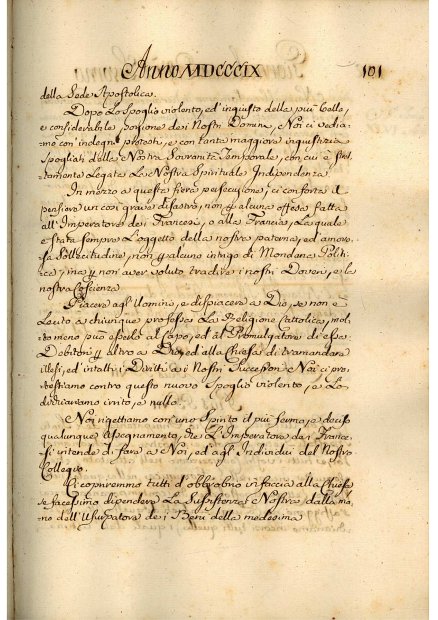 Anno MDCCCIX 101
della Sede Apostolica.
Dopo lo spoglio violento, ed' ingiusto della più bella,
e considerabile porzione dei Nostri Dominj, Noi ci vedia=
=mo con' indegni pretesti, e con tanta maggiore ingiustizia
spogliati della Nostra Sovranità Temporale, con cui è stret=
=tamente legata la Nostra Spirituale Indipendenza
In mezzo a questa fiera persecuzione, ci conforta il
pensiero un così grave disastro, non p alcuna offesa fatta
all' Imperatore dei Francesi, o alla Francia, la quale
è stata sempre l'oggetto della nostra paterna, ed amoro=
=sa sollecitudine, non p alcun intrigo di Mondana Politi=
=ca, ma p non aver voluto tradire i nostri Doveri, e la
nostra Coscienza
Piacere agl' Uomini, e dispiacere a Dio, se non è
lecito a chiunque professa la Religione Cattolica, mol=
=to meno può esserlo al Capo, ed al Promulgatore di essa.
Debitori p altro a Dio, ed alla Chiesa di tramandare
illesi, ed intatti i Diritti a i Nostri Successori Noi ci pro=
=testiamo contro questo nuovo spoglio violento, e lo
dichiariamo irrito, e nullo.
Noi rigettiamo con' uno spirito il più fermo, e deciso
qualunque Assegnamento, che l'Imperatore de i France=
=si intende di fare a Noi, ed agl' Individui del Nostro
Collegio.
Ci copriremmo tutti d'obbrobrio in faccia alla Chiesa
se facessimo dipendere la sussistenza Nostra dalla ma=
=no dell' Usurpatore de i Beni della medesima